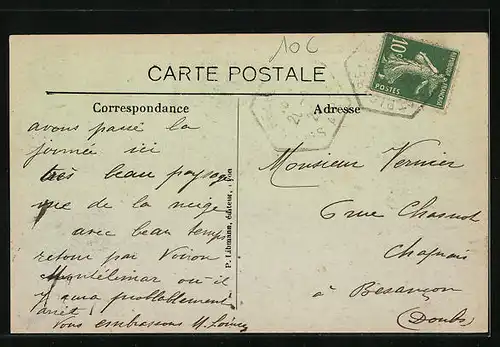 10c
CARTE POSTALE
Correspondance
Adresse
10c
POSTES
avons passé la
journée ici
très beau paysage
vue de la neige
avec beau temps
retour par Voiron
Montélimar ou il
y aura probablement
arrêt
Vous embrassons
P. Libmann, éditeur,
Monsieur Vernier
6 rue Chasnot
à Besançon
(Doubs)